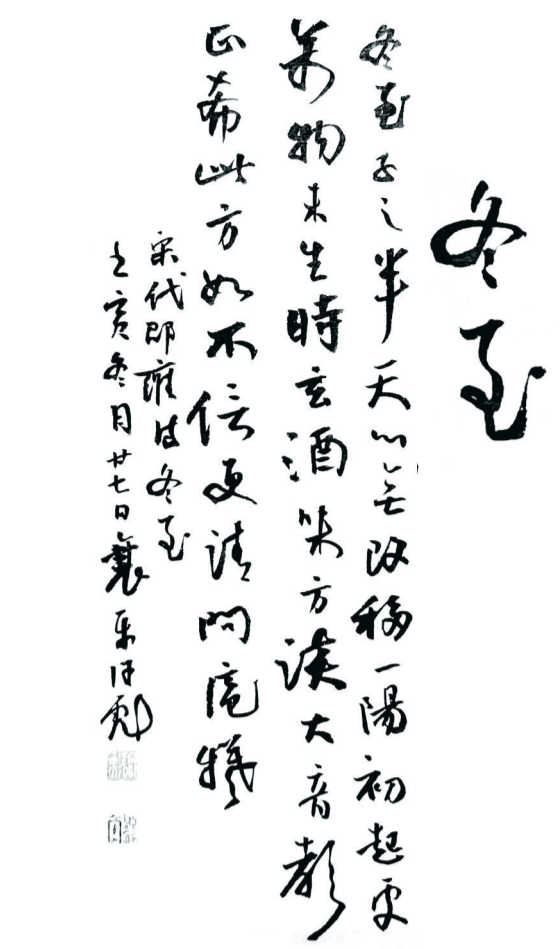 冬至
冬至子之半天心無改移一陽初起處
萬物未生時玄酒味方淡大音聲
正希此方如不信更請問庖犧
宋代邵雍詩冬至
壬寅冬月廿七日襄